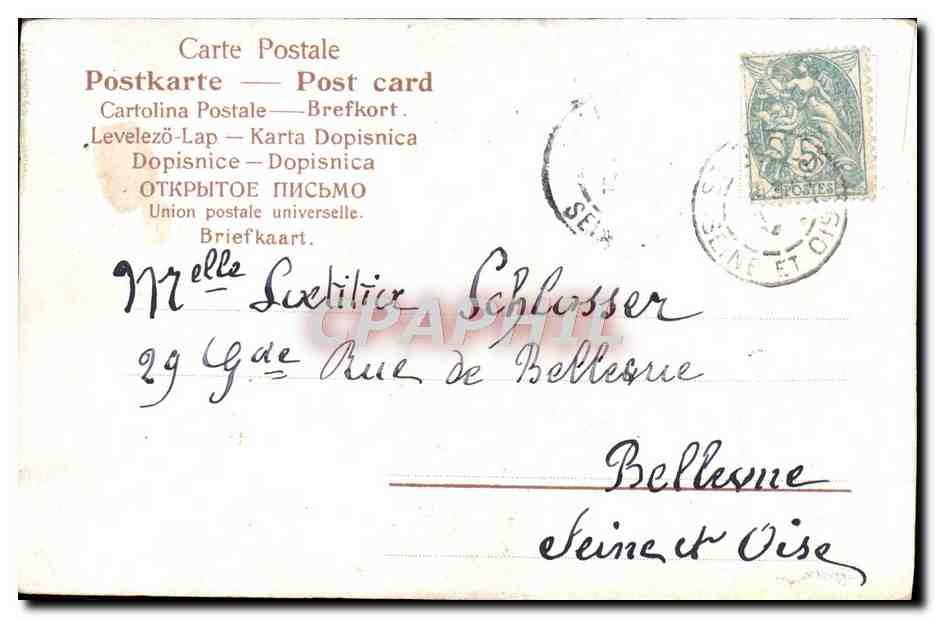 Carte Postale
Postkarte — Post card
Cartolina Postale — Brefkort.
Levelező-Lap — Karta Dopisnica
Dopisnice — Dopisnica
ОТКРЫТОЕ ПИСЬМО
Union postale universelle.
Briefkaart.
5
POSTES
SEINE ET OISE
Melle Laetitia Schlosser
CPAPHIL
29 Gde Rue de Bellevue
Bellevue
Seine et Oise